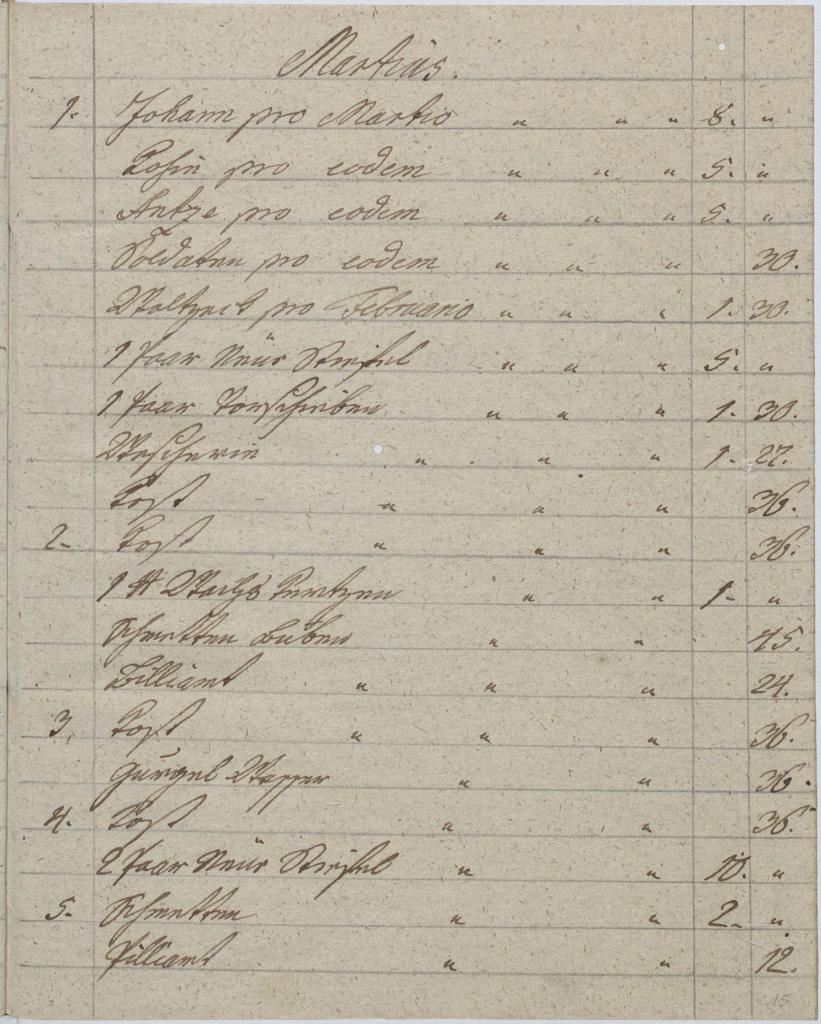 Martius.
1. Johann pro Martio " " " 8. "
Rosin pro eodem " " " 5. "
Antze pro eodem " " " 5. "
Soldaten pro eodem " " " 30.
pro Februario " " " 1. 30.
1 Paar Neue Stiefel " " " 5. "
1 Paar Vorschieben " " " 1. 30.
Wescherin " " " 1. 27.
Kost " " " 36.
2. Kost " " " 36.
1 ℔ Wachs Kertzen " " 1. "
Schmetten Buben " " 45.
Billiamt " " " 24.
3. Kost " " " 36.
Gurgel Wasser " " 36.
4. Kost " " 36.
2 Paar Neue Stiefel " " 10. "
5. Schmetten " " 2. "
Pilliamt " " 12.
15